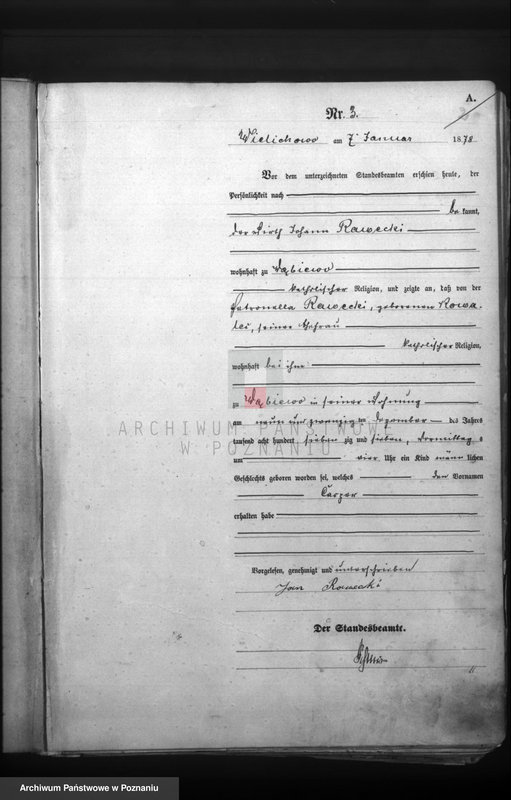 A.
Nr. 3.
Wielichowo am 7. Januar 1878
Vor dem unterzeichneten Standesbeamten erschien heute, der
Persönlichkeit nach
be kannt,
der Wirth Johann Rawecki
wohnhaft zu Dąbiewo
katholischer Religion, und zeigte an, daß von der
Petronella Rawecki, geborenen Kowa-
lei, seiner Ehefrau
katholischer Religion,
wohnhaft bei ihm
zu Dąbiewo in seiner Wohnung
am neun und zwanzigsten Dezember des Jahres
tausend acht hundert sieben zig und sieben, Vormittags
um vier Uhr ein Kind männlichen
Geschlechts geboren worden sei, welches den Vornamen
Casper
erhalten habe
Vorgelesen, genehmigt und unterschrieben
Jan Rawecki
Der Standesbeamte.
ARCHIWUM PAŃSTWOWE
W POZNANIU
Archiwum Państwowe w Poznaniu